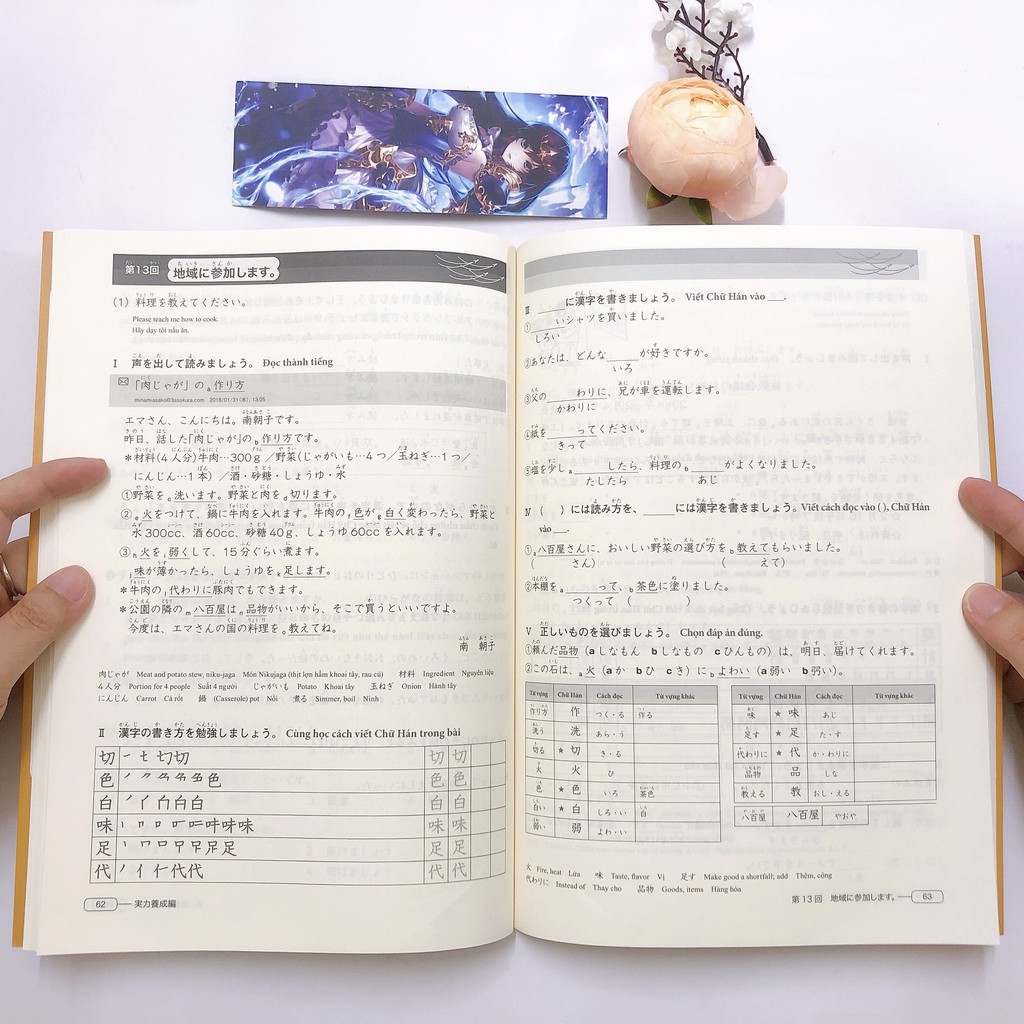 第13回 地域に参加します。
(1) 料理を教えてください。
Please teach me how to cook.
Hãy dạy tôi nấu ăn.
Ⅰ 声を出して読みましょう。 Đọc thành tiếng
「肉じゃが」の a 作り方
minamiasako@3asakura.com 2018/01/31(水), 13:05
エマさん、こんにちは。南朝子です。
昨日、話した「肉じゃが」の b 作り方です。
*材料(4人分)牛肉…300g/野菜(じゃがいも…4つ/玉ねぎ…1つ/
にんじん…1本)/酒・砂糖・しょうゆ・水
①野菜を c 洗います。野菜と肉を d 切ります。
②e 火をつけて、鍋に牛肉を入れます。牛肉の f 色が g 白く変わったら、野菜と
水300cc、酒60cc、砂糖40g、しょうゆ60ccを入れます。
③h 火を i 弱くして、15分ぐらい煮ます。
j 味が薄かったら、しょうゆを k 足します。
*牛肉の l 代わりに豚肉でもできます。
*公園の隣の m 八百屋は n 品物がいいから、そこで買うといいですよ。
今度は、エマさんの国の料理を o 教えてね。
南 朝子
肉じゃが Meat and potato stew, niku-jaga Món Nikujaga (thịt lợn hầm khoai tây, rau củ) 材料 Ingredient Nguyên liệu
4人分 Portion for 4 people Suất 4 người じゃがいも Potato Khoai tây 玉ねぎ Onion Hành tây
にんじん Carrot Cà rốt 鍋 (Casserole) pot Nồi 煮る Simmer, boil Ninh
Ⅱ 漢字の書き方を勉強しましょう。 Cùng học cách viết Chữ Hán trong bài
切 切 切 切
色 色 色 色
白 白 白 白
味 味 味 味
足 足 足 足
代 代 代 代
62 実力養成編
Ⅲ ＿＿に漢字を書きましょう。 Viết Chữ Hán vào ___.
①＿＿いシャツを買いました。
しろい
②あなたは、どんな＿＿が好きですか。
いろ
③父の＿＿わりに、兄が車を運転します。
かわりに
④紙を＿＿ってください。
きって
⑤塩を少し a ＿＿したら、料理の b ＿＿がよくなりました。
たしたら あじ
Ⅳ ( )には読み方を、＿＿には漢字を書きましょう。 Viết cách đọc vào ( ), Chữ Hán
vào ___.
①a 八百屋さんに、おいしい野菜の選び方を b 教えてもらいました。
( さん) ( えて)
②本棚を a ＿＿って、b 茶色に塗りました。
つくって ( )
Ⅴ 正しいものを選びましょう。 Chọn đáp án đúng.
①頼んだ品物 (a しなもん b しなもの c ひんもの) は、明日、届けてくれます。
②この石は、a 火 (a か b ひ c き) に b よわい (a 弱い b 弱い)。
Từ vựng Chữ Hán Cách đọc Từ vựng khác
作り方 作 つく・る 作る
洗う 洗 あら・う
切る ★切 き・る
火 火 ひ
色 ★色 いろ 茶色
白い ★白 しろ・い 白
弱い 弱 よわ・い
Từ vựng Chữ Hán Cách đọc Từ vựng khác
味 ★味 あじ
足す ★足 た・す
代わりに ★代 か・わりに
品物 品 しな
教える 教 おし・える
八百屋 八百屋 やおや
火 Fire, heat Lửa 味 Taste, flavor Vị 足す Make good a shortfall; add Thêm, cộng
代わりに Instead of Thay cho 品物 Goods, items Hàng hóa
第13回 地域に参加します。 63